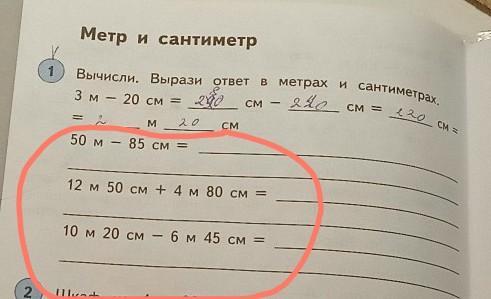 Метр и сантиметр
1 Вычисли. Вырази ответ в метрах и сантиметрах.
3 м − 20 см = см − 220 см = 220 см =
= 2 м 20 см
50 м − 85 см =
12 м 50 см + 4 м 80 см =
10 м 20 см − 6 м 45 см =
2